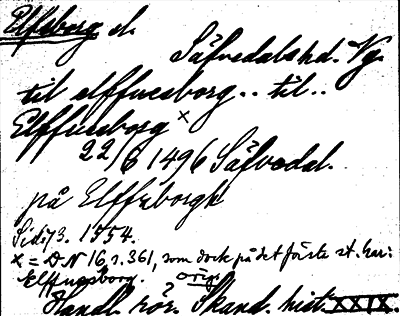 Elfsborg sl.
Säfvedals hd. Vg.
til elffuesborg .. til ..
Elffuesborg x
22/6 1496 Säfvedal.
på Elffsborgh
Sid. 73. 1554.
x = D.N 16, s. 361, som dock på det första st. har:
Elffuesborg. orig.
Handl. rör. Skand. hist. XXIX.